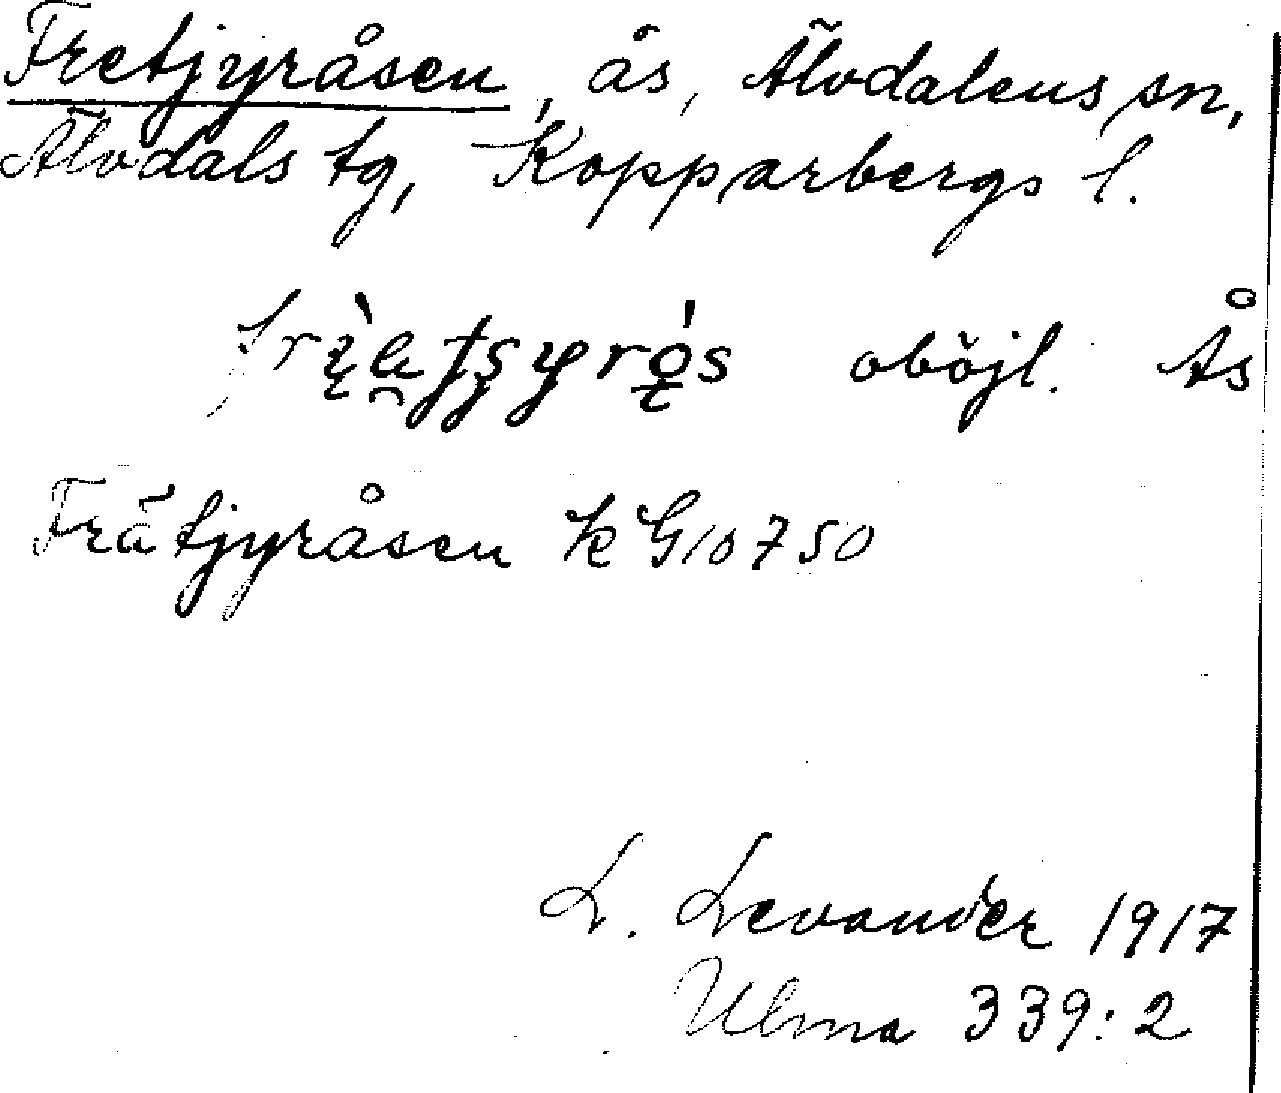 Fretjyråsen, ås, Älvdalens sn,
Älvdals tg, Kopparbergs l.
oböjl. Ås
Frätjyråsen k G10750
L. Levander 1917
Ulma 339:2